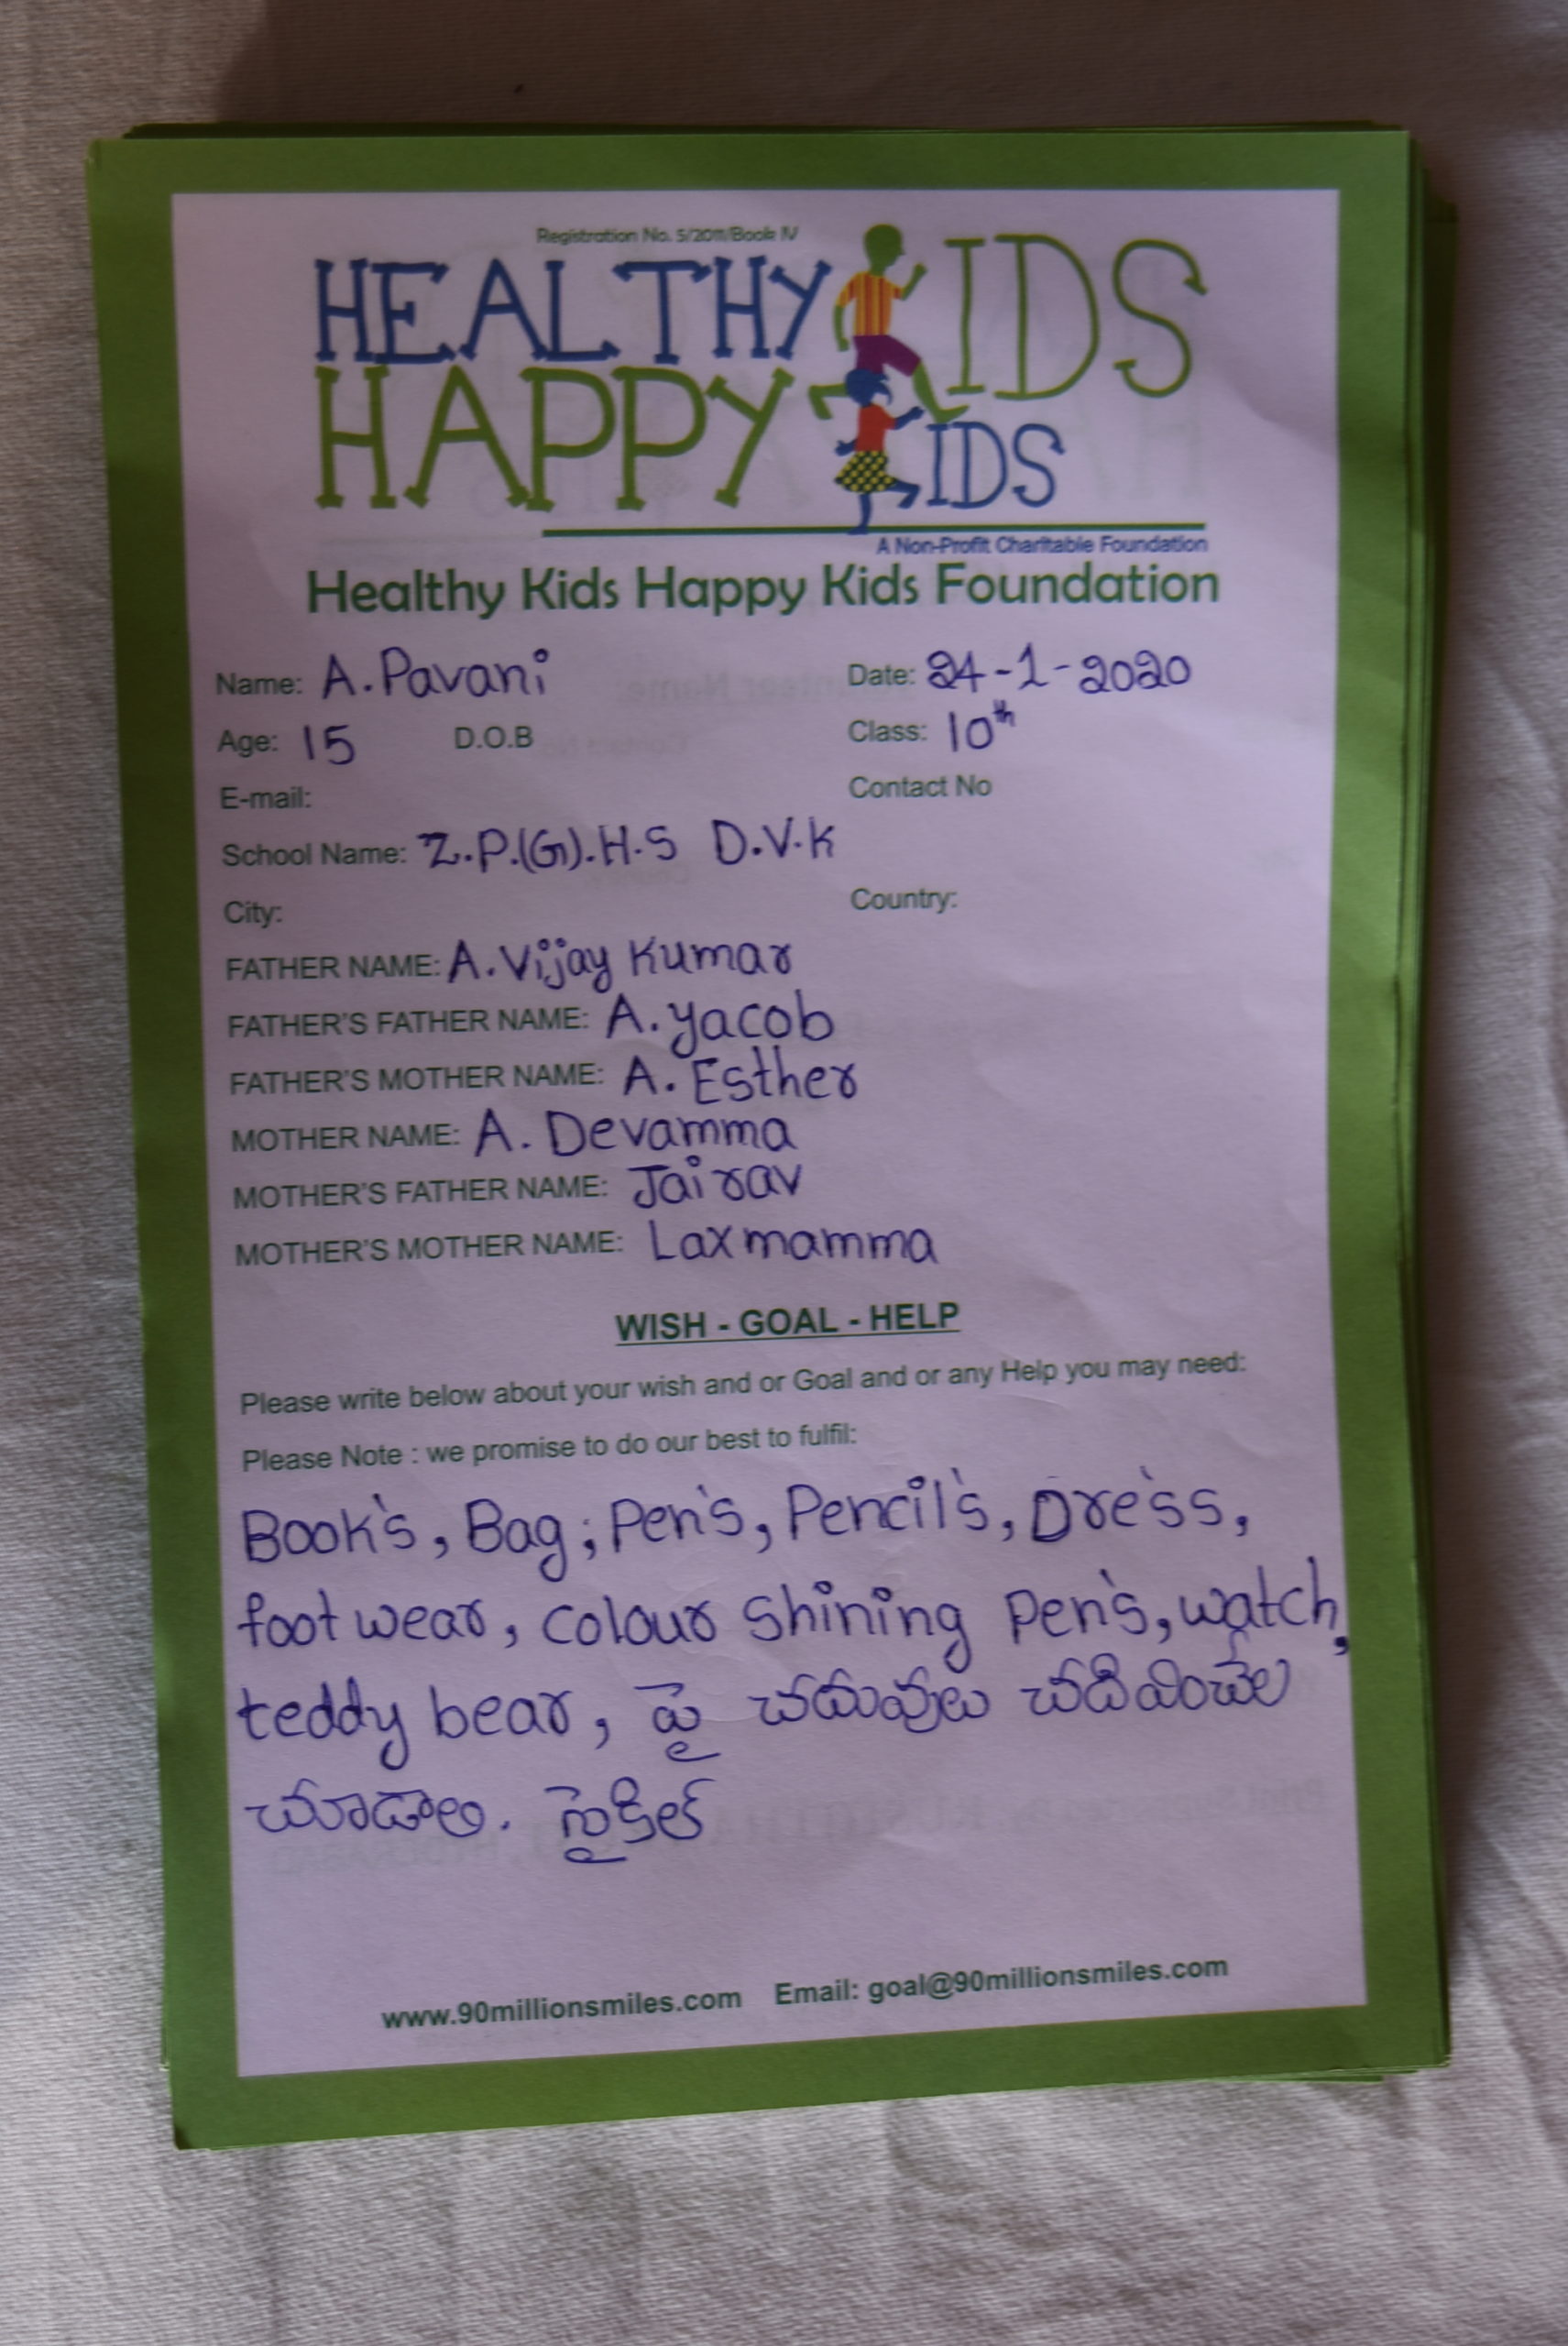 Registration No. 5/2011/Book IV
HEALTHY KIDS
HAPPY KIDS
A Non-Profit Charitable Foundation
Healthy Kids Happy Kids Foundation
Name: A. Pavani Date: 24-1-2020
Age: 15 D.O.B Class: 10th
E-mail: Contact No
School Name: Z.P.(G).H.S D.V.K
City: Country:
FATHER NAME: A. Vijay Kumar
FATHER'S FATHER NAME: A. yacob
FATHER'S MOTHER NAME: A. Esther
MOTHER NAME: A. Devamma
MOTHER'S FATHER NAME: Jairav
MOTHER'S MOTHER NAME: Laxmamma
WISH - GOAL - HELP
Please write below about your wish and or Goal and or any Help you may need:
Please Note : we promise to do our best to fulfil:
Book's, Bag; Pen's, Pencil's, Dre's's,
foot wear, colour shining Pen's, watch,
teddy bear, పై చదువులు చదివించేల
చూడాలి. సైకిల్
www.90millionsmiles.com Email: goal@90millionsmiles.com